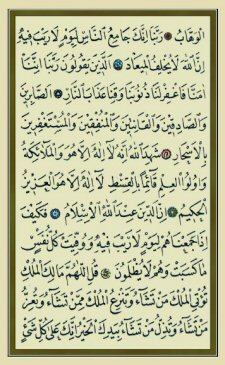 الْوَهَّابُ ۝ رَبَّنَا اِنَّكَ جَامِعُ النَّاسِ لِيَوْمٍ لَا رَيْبَ فِيهِ
اِنَّ اللّٰهَ لَا يُخْلِفُ الْمِيعَادَ ۝ اَلَّذِينَ يَقُولُونَ رَبَّنَا اِنَّنَا
اٰمَنَّا فَاغْفِرْ لَنَا ذُنُوبَنَا وَقِنَا عَذَابَ النَّارِ ۝ اَلصَّابِرِينَ
وَالصَّادِقِينَ وَالْقَانِتِينَ وَالْمُنْفِقِينَ وَالْمُسْتَغْفِرِينَ
بِالْاَسْحَارِ ۝ شَهِدَ اللّٰهُ اَنَّهُ لَا اِلٰهَ اِلَّا هُوَ وَالْمَلٰئِكَةُ
وَاُولُوا الْعِلْمِ قَائِمًا بِالْقِسْطِ لَا اِلٰهَ اِلَّا هُوَ الْعَزِيزُ
الْحَكِيمُ ۝ اِنَّ الدِّينَ عِنْدَ اللّٰهِ الْاِسْلَامُ ۝ فَكَيْفَ
اِذَا جَمَعْنَاهُمْ لِيَوْمٍ لَا رَيْبَ فِيهِ وَوُفِّيَتْ كُلُّ نَفْسٍ
مَا كَسَبَتْ وَهُمْ لَا يُظْلَمُونَ ۝ قُلِ اللّٰهُمَّ مَالِكَ الْمُلْكِ
تُؤْتِي الْمُلْكَ مَنْ تَشَاءُ وَتَنْزِعُ الْمُلْكَ مِمَّنْ تَشَاءُ وَتُعِزُّ
مَنْ تَشَاءُ وَتُذِلُّ مَنْ تَشَاءُ بِيَدِكَ الْخَيْرُ اِنَّكَ عَلٰى كُلِّ شَيْءٍ